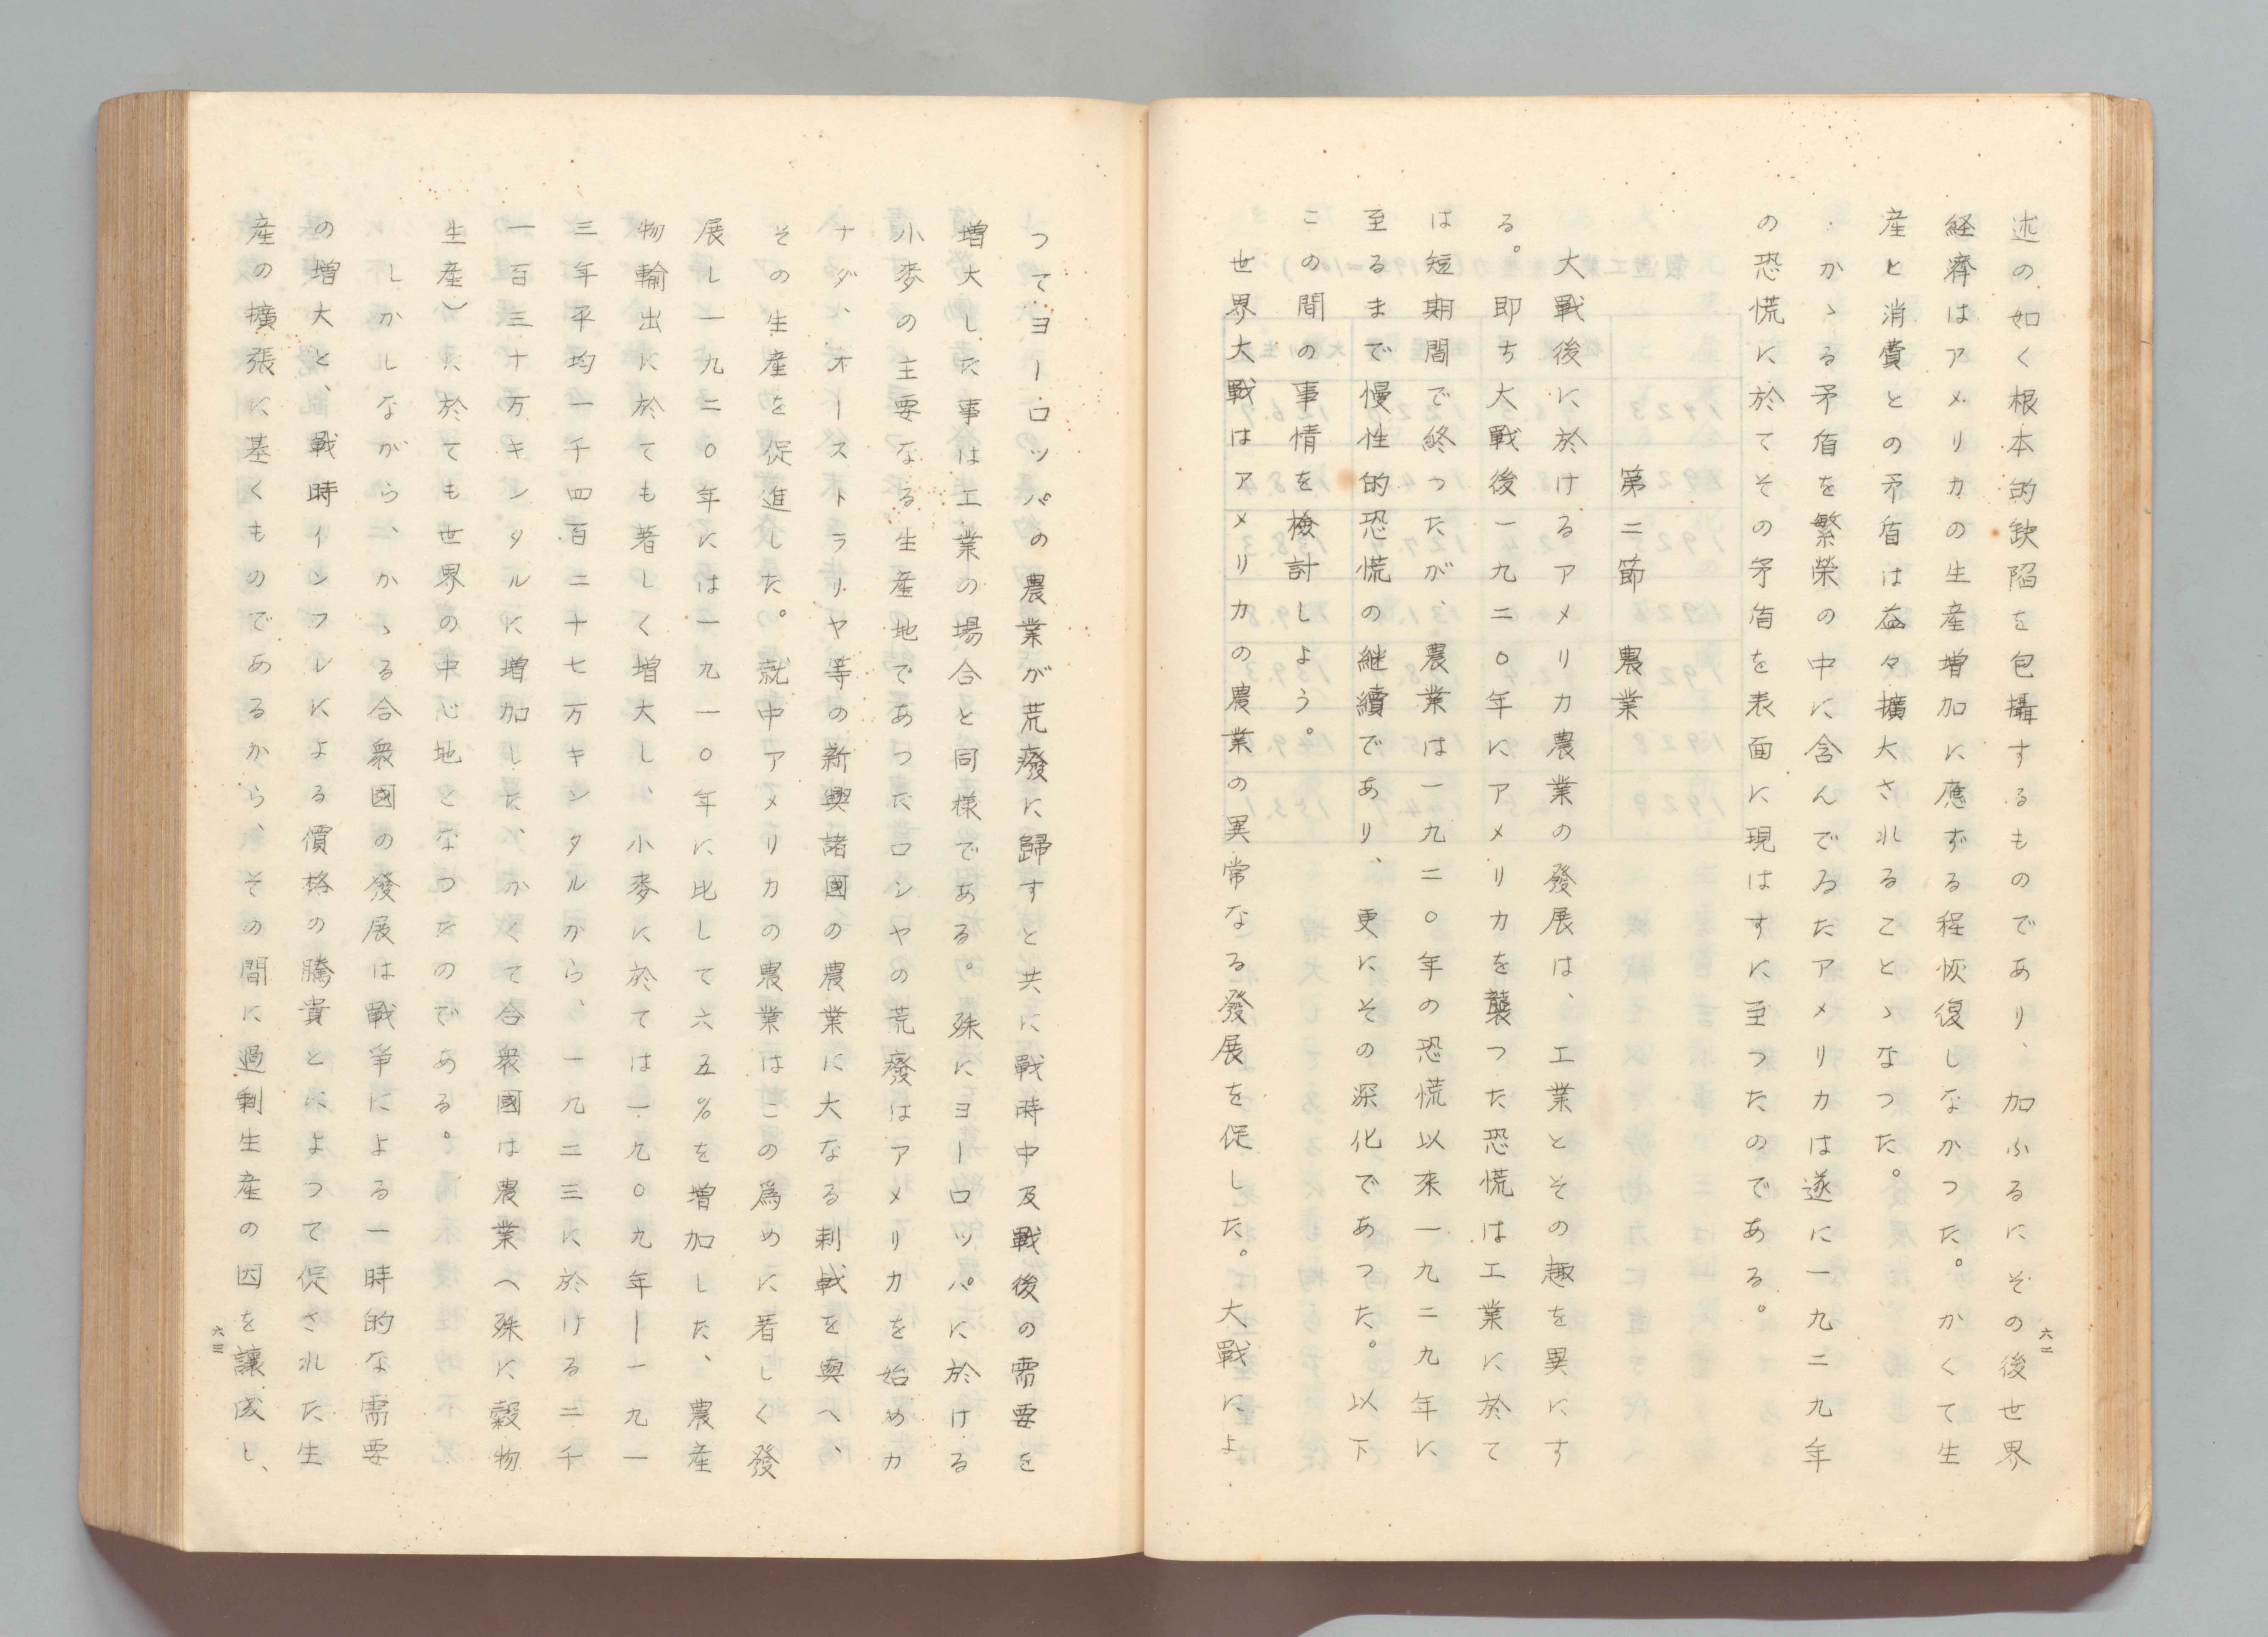 述の如く根本的缺陷を包攝するものであり、加ふるにその後世界
経濟はアメリカの生産増加に應ずる程恢復しなかつた。かくて生
産と消費との矛盾は益々擴大されることゝなつた。
かゝる矛盾を繁榮の中に含んでゐたアメリカは遂に一九二九年
の恐慌に於てその矛盾を表面に現はすに至つたのである。
第二節　農業
大戰後に於けるアメリカ農業の發展は、工業とその趣を異にす
る。即ち大戰後一九二〇年にアメリカを襲つた恐慌は工業に於て
は短期間で終つたが、農業は一九二〇年の恐慌以來一九二九年に
至るまで慢性的恐慌の継續であり、更にその深化であつた。以下
この間の事情を檢討しよう。
世界大戰はアメリカの農業の異常なる發展を促した。大戰によ
六二
つてヨーロッパの農業が荒廢に歸すと共に戰時中及戰後の需要を
増大した事は工業の場合と同様である。殊にヨーロッパに於ける
小麥の主要なる生産地であつたロシヤの荒廢はアメリカを始めカ
ナダ、オーストラリヤ等の新興諸國の農業に大なる刺戟を與へ、
その生産を促進した。就中アメリカの農業はこの爲めに著しく發
展し一九二〇年には一九一〇年に比して六五％を増加した、農産
物輸出に於ても著しく増大し、小麥に於ては一九〇九年ー一九一
三年平均一千四百二十七万キンタルから、一九二三に於ける二千
一百三十万キンタルに増加した、かくて合衆國は農業へ殊に穀物
生産）に於ても世界の中心地となつたのである。
しかしながら、かゝる合衆國の發展は戰爭による一時的な需要
の増大と、戰時インフレによる價格の騰貴とによつて促された生
産の擴張に基くものであるから、その間に過剰生産の因を讓成し、
六三